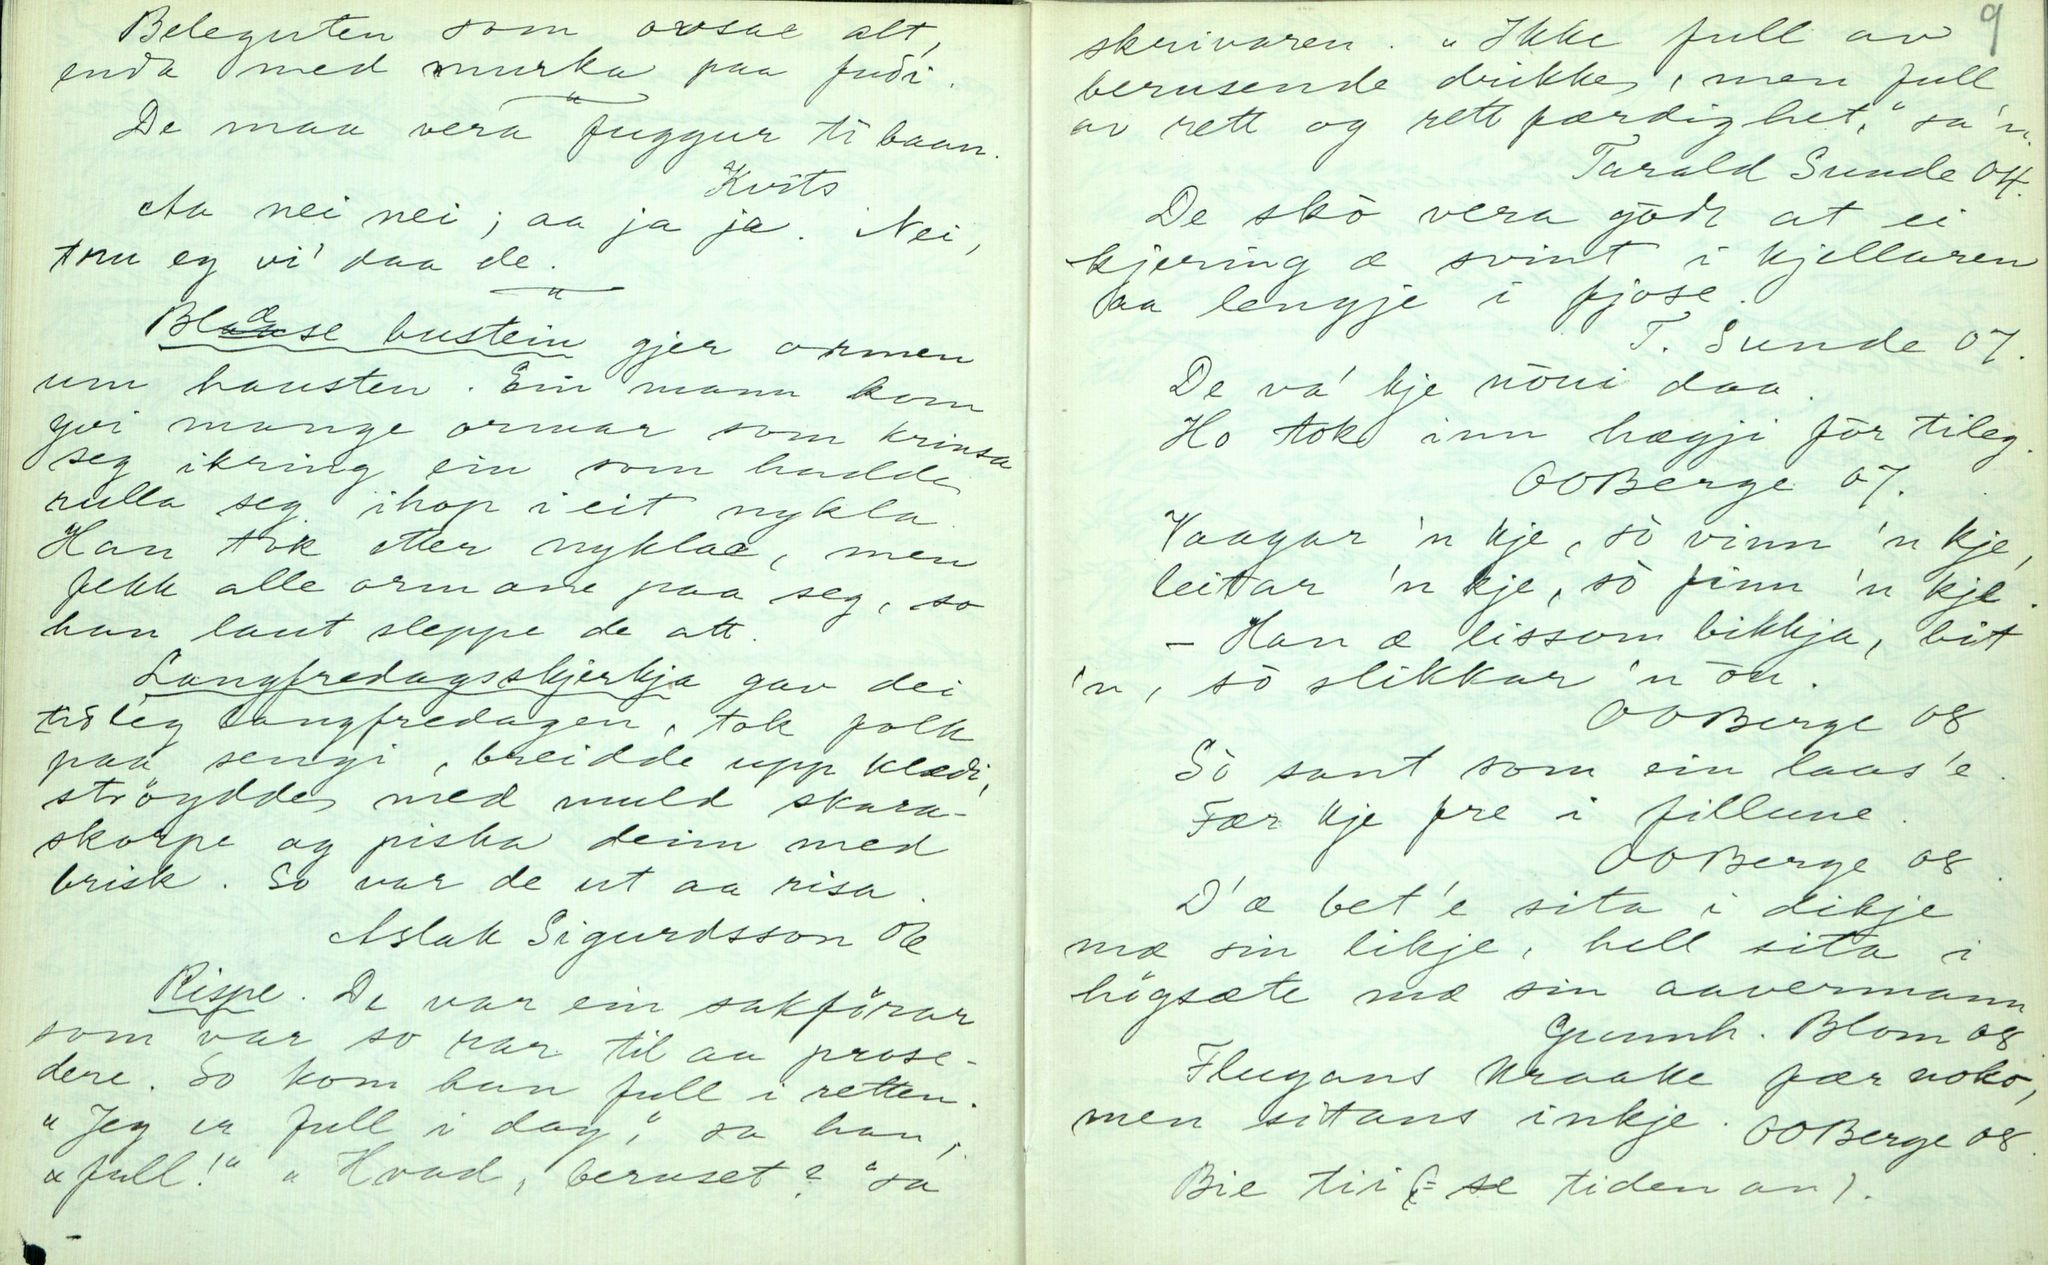 Beleguten som ovsae alt,
enda med murka paa fudi.
"
De maa vera fuggur ti baan.
Kvits
Aa nei nei; aa ja ja. Nei,
tru eg vi' daa de.
"
Blaase bustein gjer ormen
um hausten. Ein mann kom
yvi mange ormar som krinsa
seg ikring ein som hadde
rulla seg ihop i eit nykla.
Han tok etter nyklae, men
fekk alle ormane paa seg, so
han laut sleppe de att.
Langfredagsskjerkja gav dei
tidleg langfredagen, tok folk
paa sengi, breidde upp klædi,
ströydde med muld skara-
skorpe og piska deim med
brisk. So var de ut aa risa.
Aslak Sigurdsson
Rispe. De var ein sakförar
som var so rar til aa prose-
dere. So kom han full i retten.
"Jeg er full i dag," sa han,
"full!" "Hvad, beruset?" sa
9
skrivaren. "Ikke full av
berusende drikke, men full
av rett og rettfærdighet," sa 'n.
Tarald Sunde 04.
De skò vera godt at ei
kjering æ svint i kjellaren
aa lengje i fjose.
T. Sunde 07.
De va' kje nōni daa.
Ho tok inn hægji för tileg.
OOBerge 07.
Vaagar 'n kje, sò vinn 'n kje,
leitar 'n kje, sò finn 'n kje.
- Han æ lissom bikkja, bit
'n, sò slikkar 'n òn.
OOBerge 08
Sò sant som ein laas'e.
Fær kje fre i fillune.
OOBerge 08.
D'æ bet'e sita i dikje
mæ sin likje, hell sita i
högsæte mæ sin aavermann
Gunnh. Blom 08
Flugans kraake fær noko,
men sitans inkje. OOBerge 08.
Bie tii (= se tiden an).